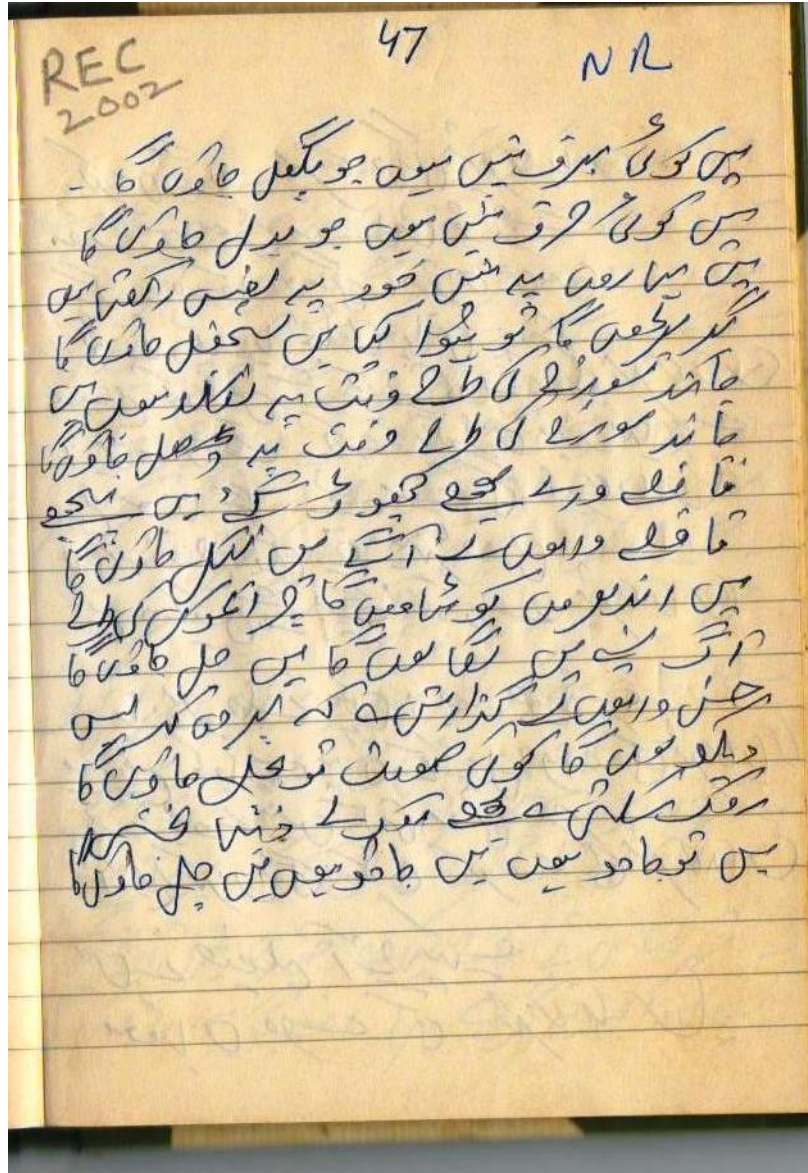 REC
2002
47
NR
میں کوئی برف نہیں ہوں جو پگھل جاؤں گا -
میں کوئی حرف نہیں ہوں جو بدل جاؤں گا
میں سہاروں پہ نہیں خود پہ یقین رکھتا ہوں
گر پڑوں گا تو ہوا کیا میں سنبھل جاؤں گا
چاند سورج کی طرح وقت پہ نکلا ہوں میں
چاند سورج کی طرح وقت پہ ڈھل جاؤں گا
قافلے والے مجھے چھوڑ گئے ہیں پیچھے
قافلے والوں سے آگے میں نکل جاؤں گا
میں اندھیروں کو مٹاؤں گا چراغوں کی طرح
آگ سینے میں لگا لوں گا میں جل جاؤں گا
حسن والوں سے گذارش ہے کہ پردہ کر لیں
دیکھ لوں گا کوئی صورت تو مچل جاؤں گا
روک سکتی ہے مجھے تو روک لے دنیا
میں تو جادو ہوں میں جادو ہوں میں چل جاؤں گا